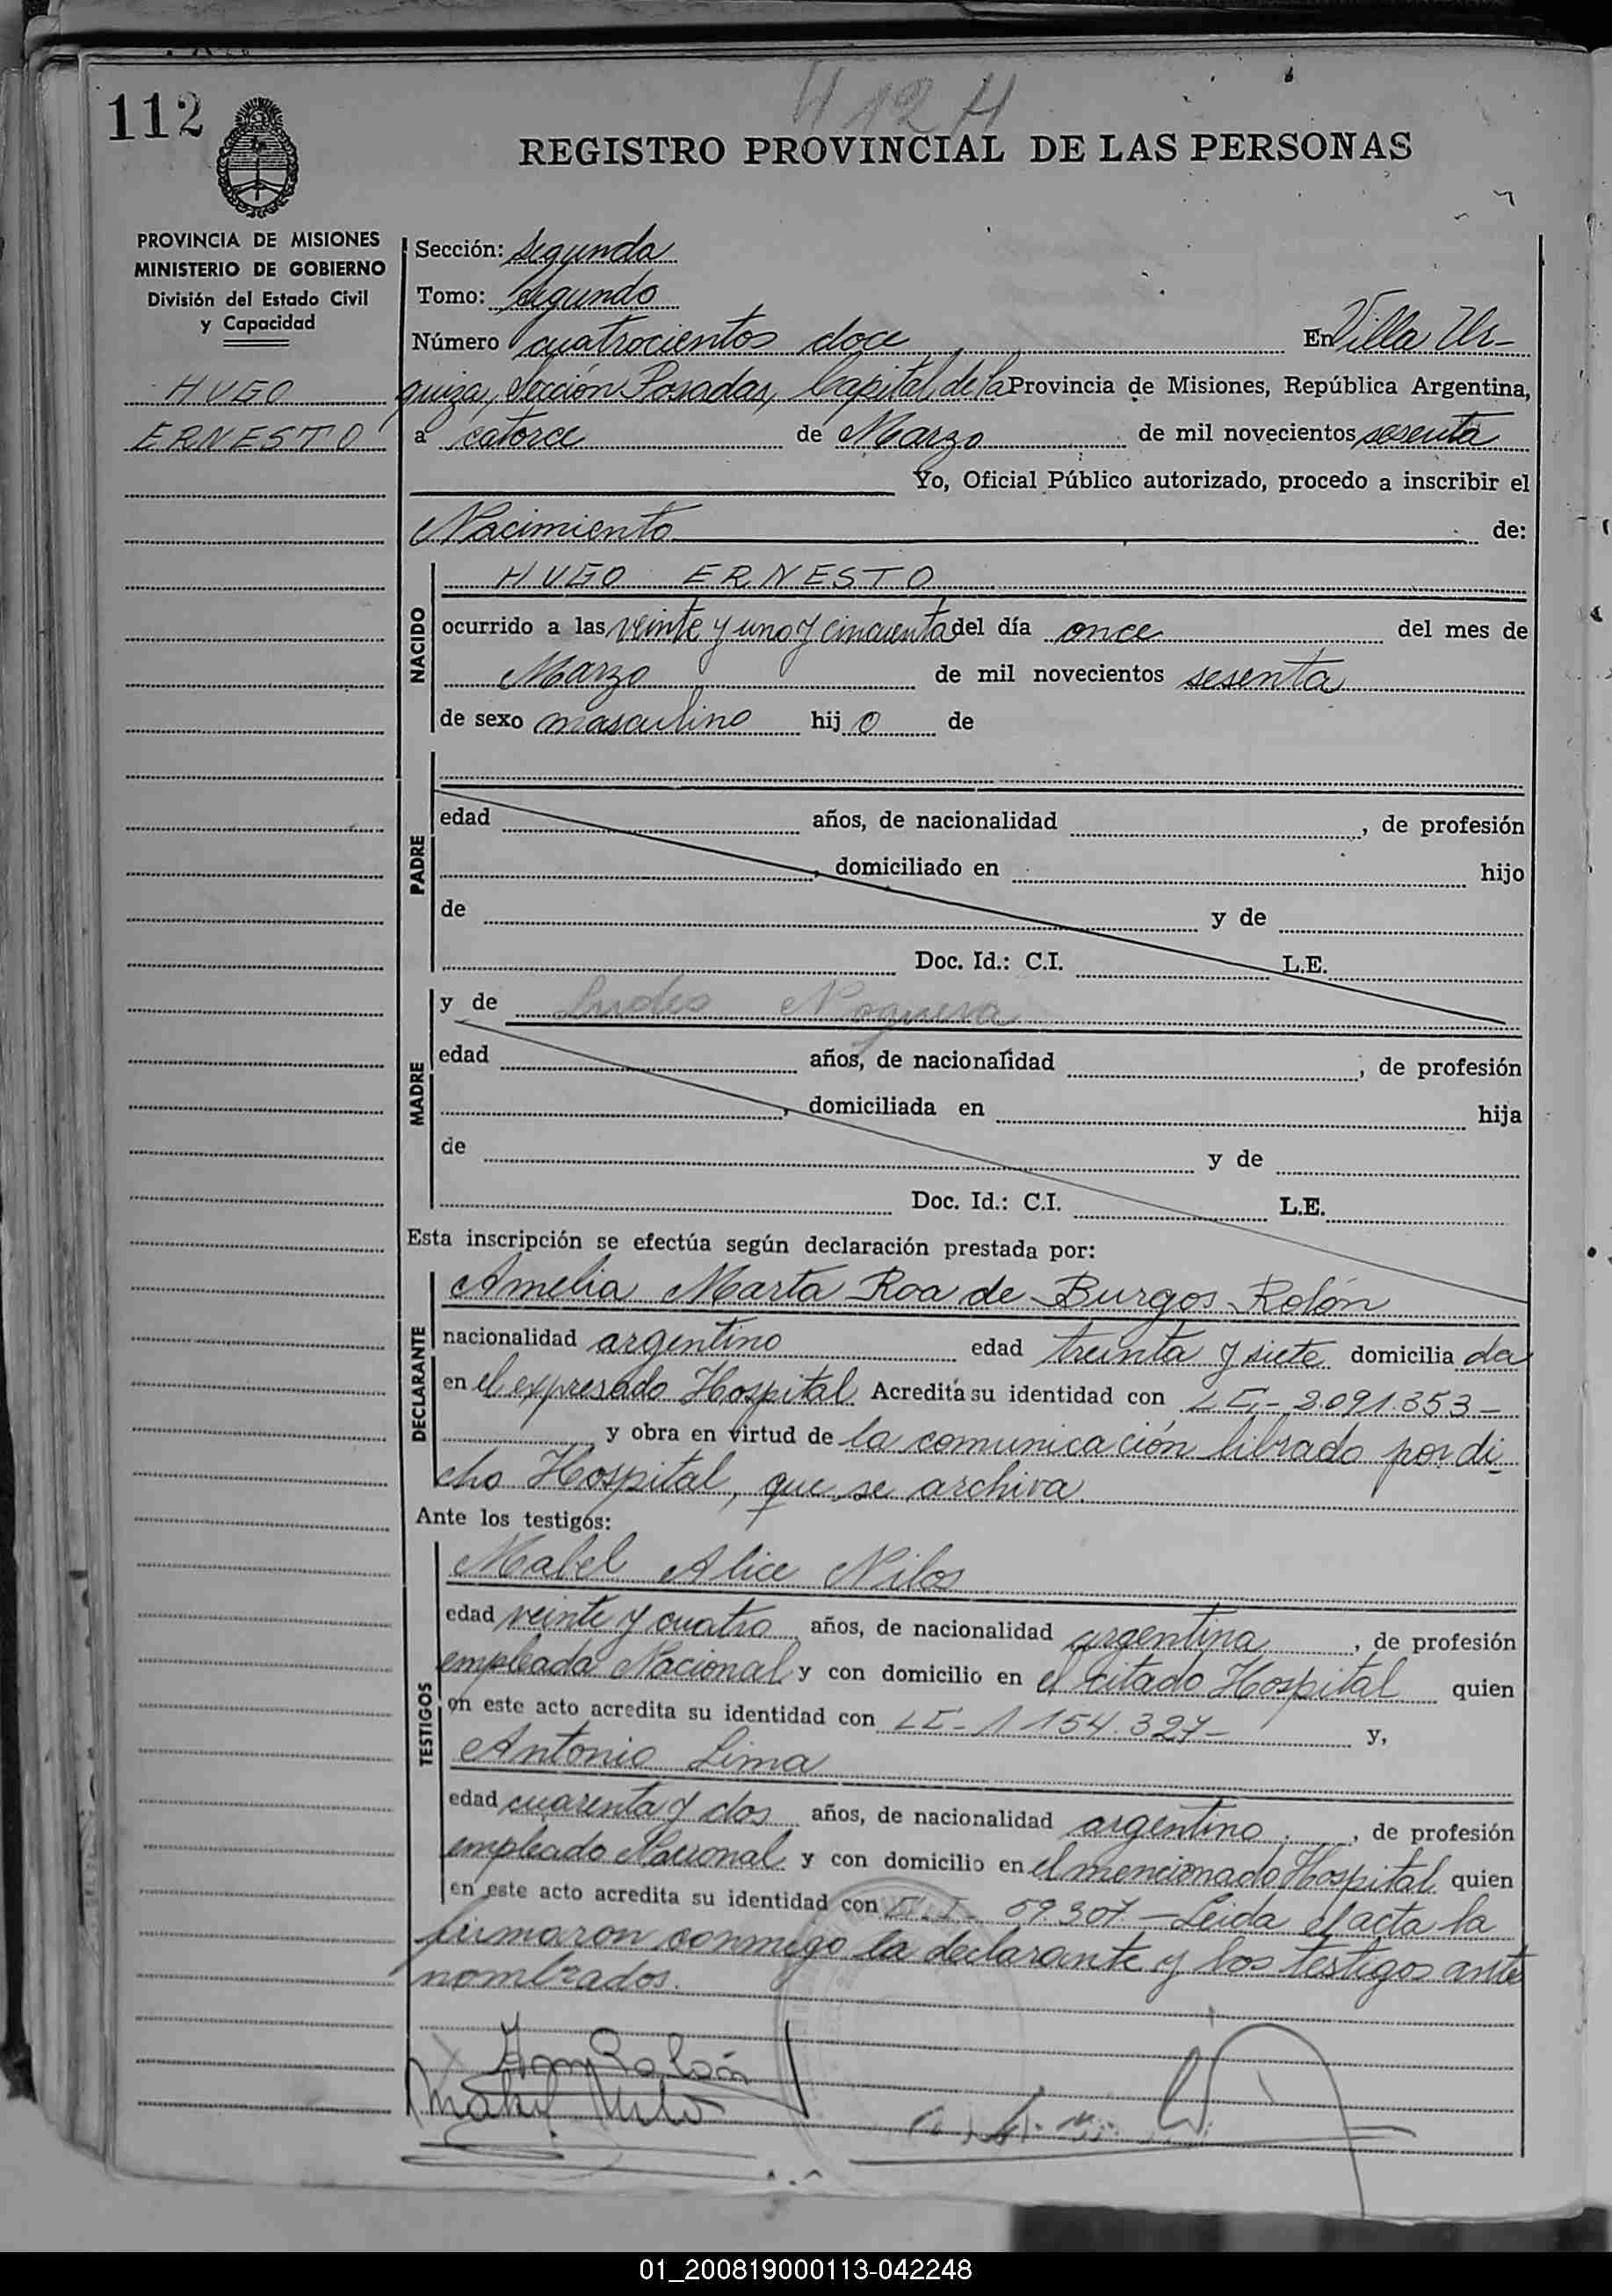 412 H
112
REGISTRO PROVINCIAL DE LAS PERSONAS
PROVINCIA DE MISIONES
MINISTERIO DE GOBIERNO
División del Estado Civil
y Capacidad
HUGO
ERNESTO
Sección: Segunda
Tomo: Segundo
Número cuatrocientos doce En Villa Ur-
quiza, Sección Posadas, Capital de la Provincia de Misiones, República Argentina,
a catorce de Marzo de mil novecientos sesenta
Yo, Oficial Público autorizado, procedo a inscribir el
Nacimiento de:
NACIDO
HUGO ERNESTO
ocurrido a las veinte y uno y cincuenta del día once del mes de
Marzo de mil novecientos sesenta
de sexo masculino hijo de
PADRE
edad años, de nacionalidad , de profesión
, domiciliado en hijo
de y de
Doc. Id.: C.I. L.E.
MADRE
y de Noguera
edad años, de nacionalidad , de profesión
, domiciliada en hija
de y de
Doc. Id.: C.I. L.E.
Esta inscripción se efectúa según declaración prestada por:
DECLARANTE
Amelia Marta Roa de Burgos Rolón
nacionalidad argentino edad treinta y siete domicilia da
en el expresado Hospital Acredita su identidad con 2.091.353-
y obra en virtud de la comunicación librado por di-
cho Hospital, que se archiva.
Ante los testigos:
TESTIGOS
Mabel Alice Nilos
edad veinte y cuatro años, de nacionalidad argentina, de profesión
empleada Nacional y con domicilio en el citado Hospital quien
en este acto acredita su identidad con 1154.327- y,
Antonio Lima
edad cuarenta y dos años, de nacionalidad argentino, de profesión
empleado Nacional y con domicilio en el mencionado Hospital quien
en este acto acredita su identidad con 59.307.- Leida el acta la
firmaron conmigo la declarante y los testigos ante
nombrados.
01_200819000113-042248